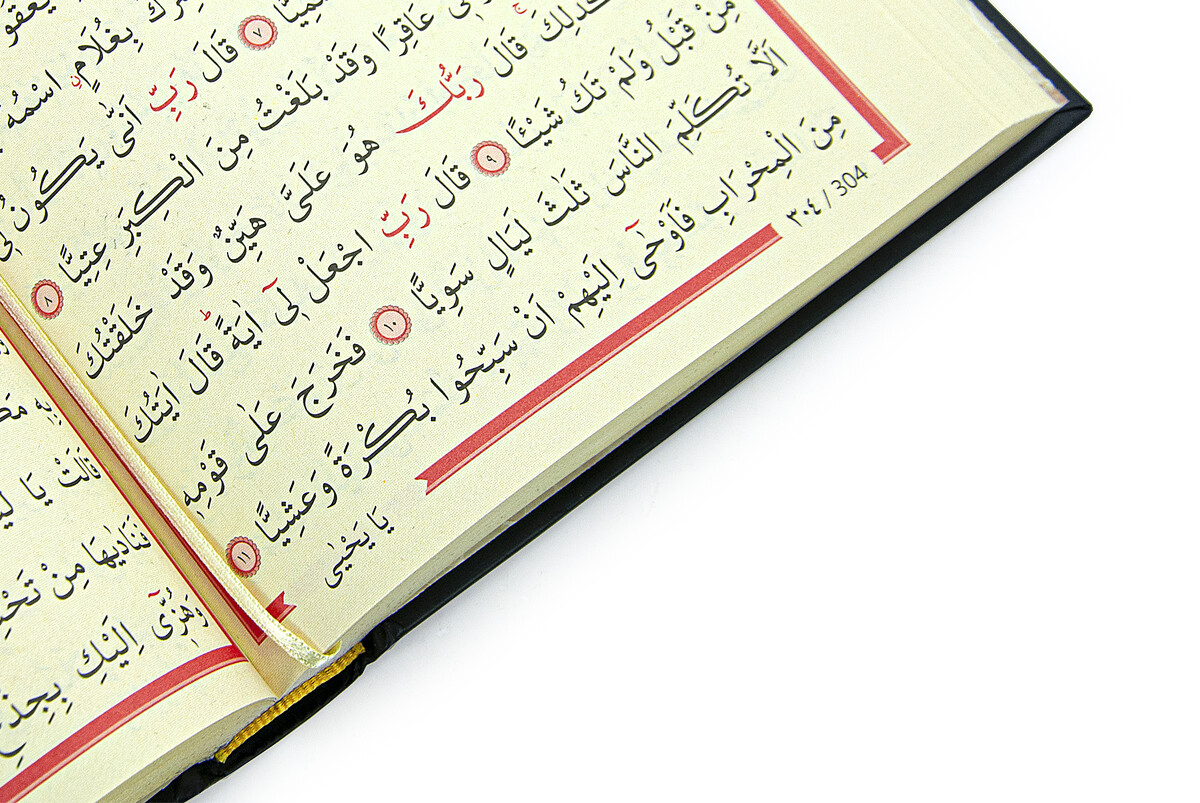 بِغُلَامٍ اسْمُهُ
٧ قَالَ رَبِّ اَنّٰى يَكُونُ لٖى
عَاقِرًا وَقَدْ بَلَغْتُ مِنَ الْكِبَرِ عِتِيًّا ٨
كَذٰلِكَ قَالَ رَبُّكَ هُوَ عَلَىَّ هَيِّنٌ وَقَدْ خَلَقْتُكَ
مِنْ قَبْلُ وَلَمْ تَكُ شَيْـًٔا ٩ قَالَ رَبِّ اجْعَلْ لٖٓى اٰيَةًؕ قَالَ اٰيَتُكَ
اَلَّا تُكَلِّمَ النَّاسَ ثَلٰثَ لَيَالٍ سَوِيًّا ١٠ فَخَرَجَ عَلٰى قَوْمِهٖ
مِنَ الْمِحْرَابِ فَاَوْحٰٓى اِلَيْهِمْ اَنْ سَبِّحُوا بُكْرَةً وَعَشِيًّا ١١
٣٠٤ / 304
يَا يَحْيٰى
قَالَتْ يَا
فَنَادٰيهَا مِنْ
وَهُزّٖٓى اِلَيْكِ بِجِذْعِ